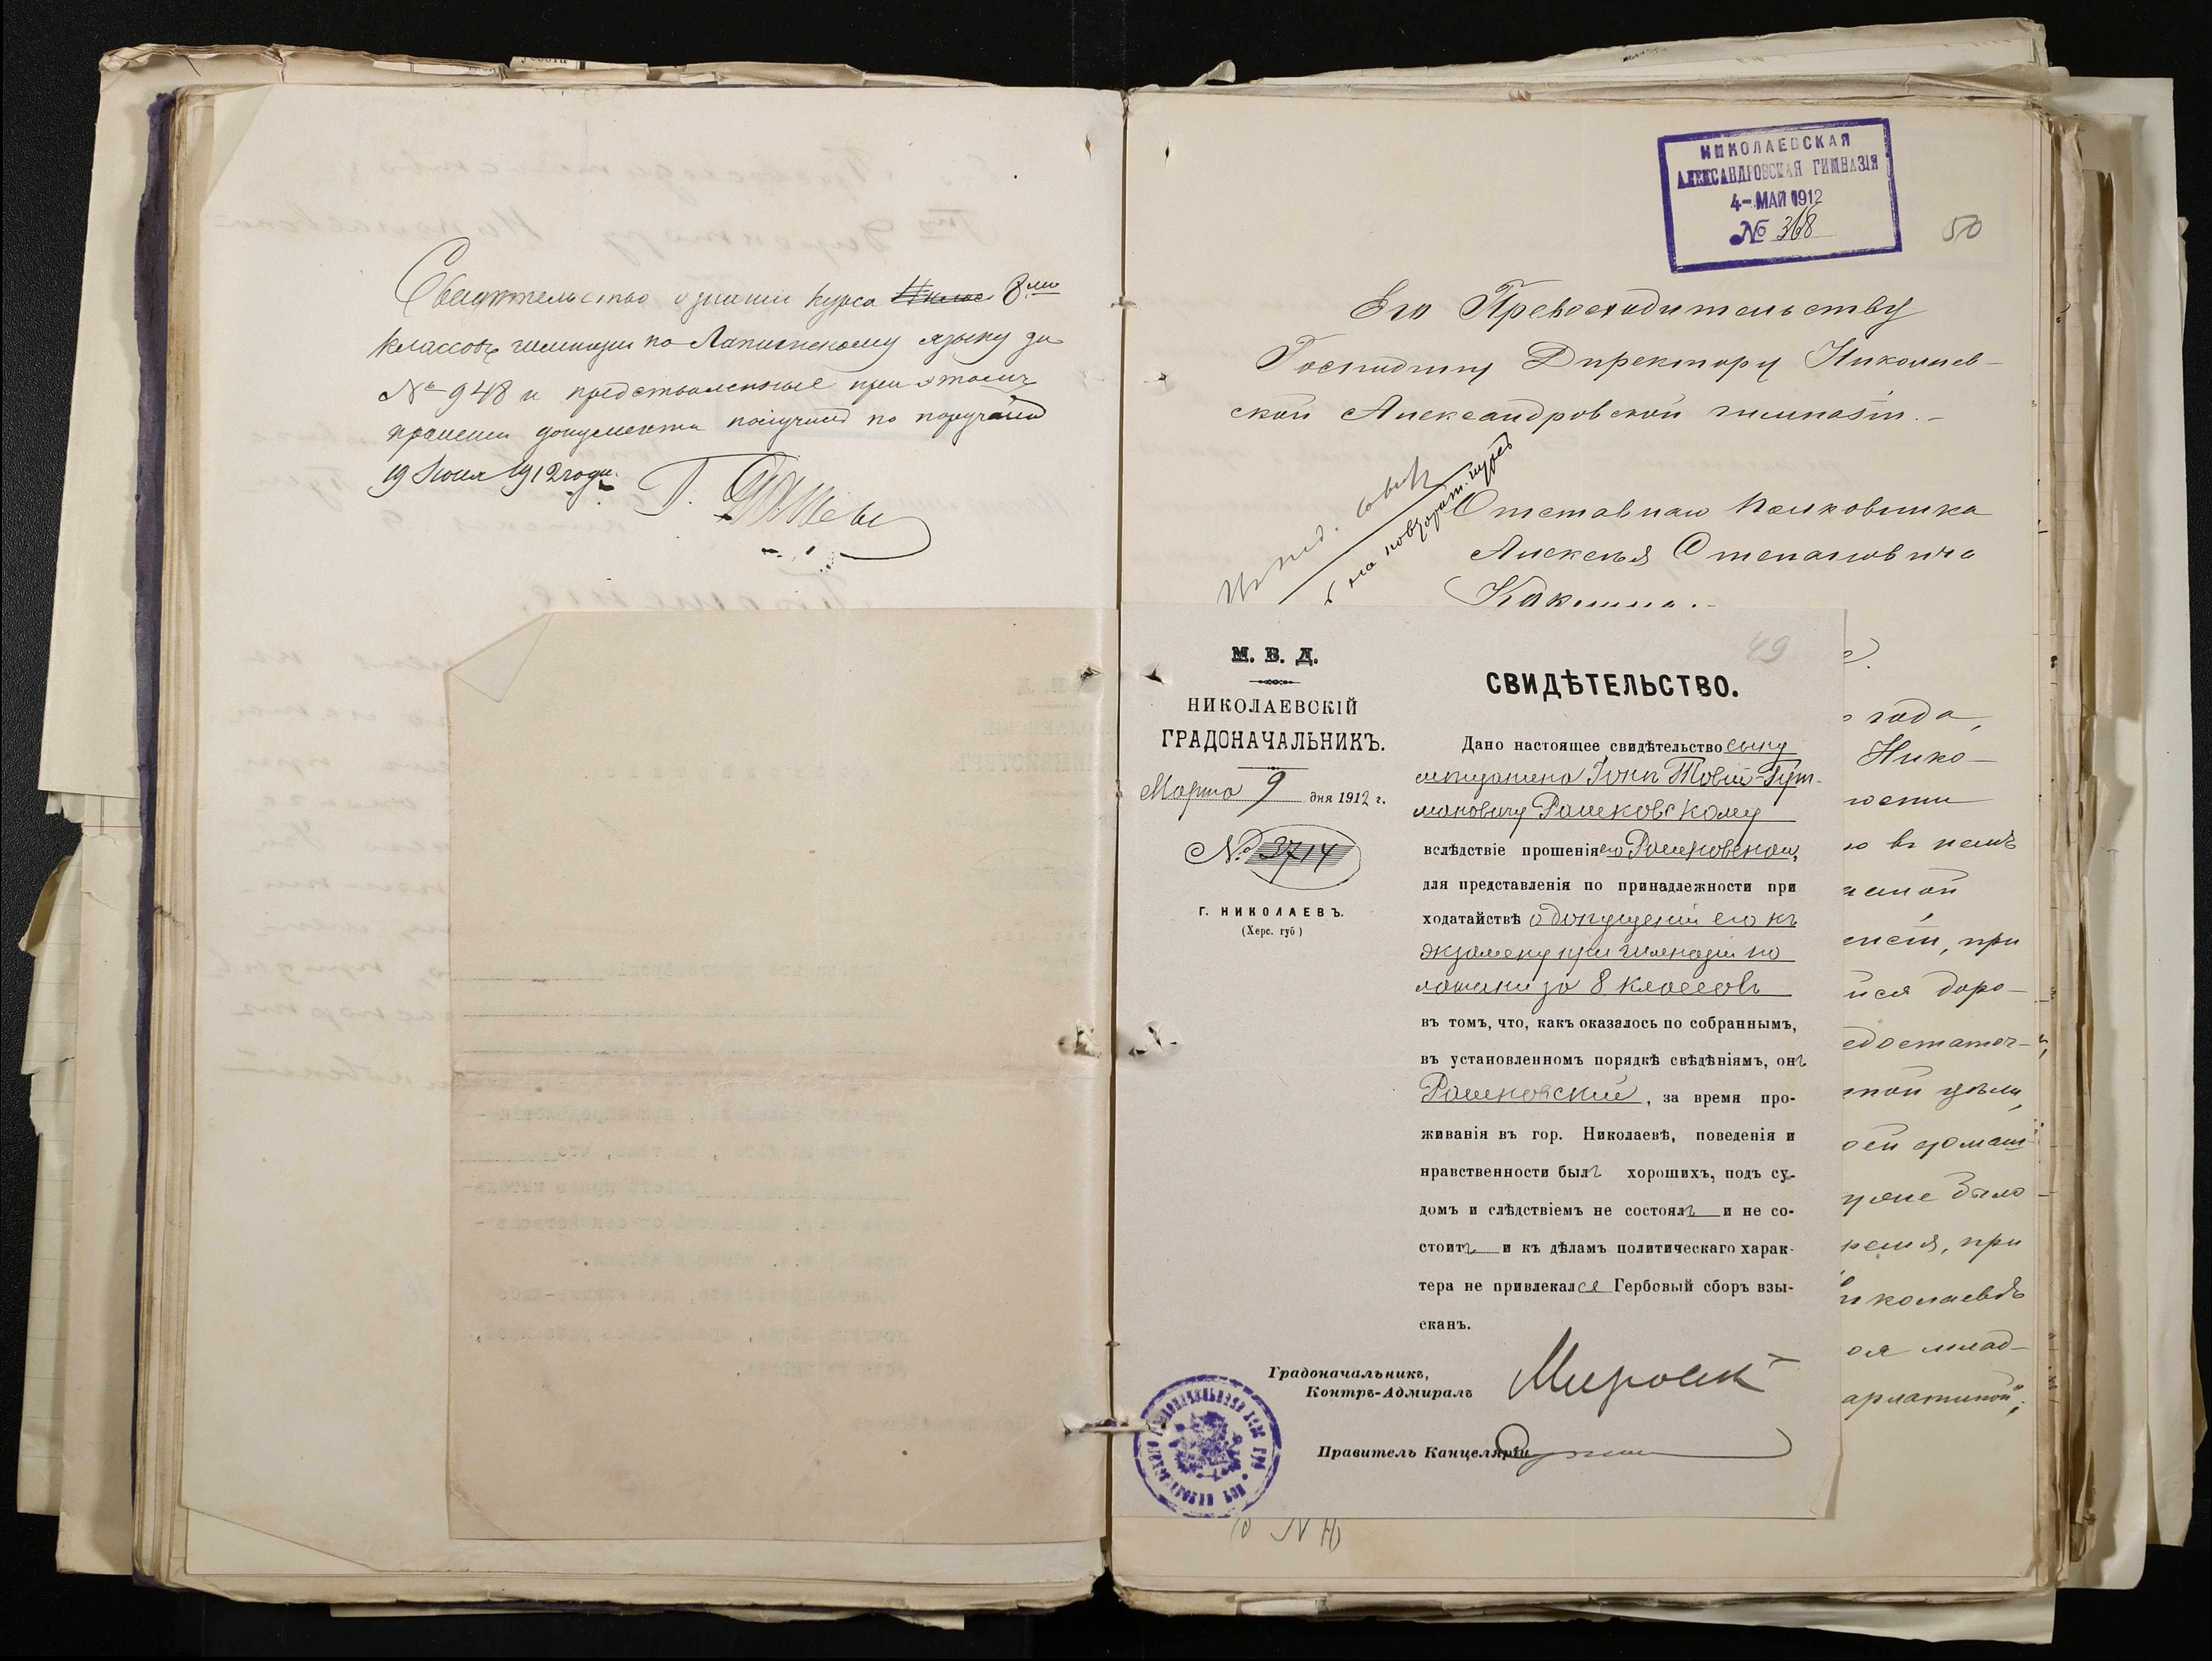 Свидѣтельство о знаніи курса 8ми
классовъ гимназіи по Латинскому языку за
№ 948 и представленные при этомъ
прошеніи документы получилъ по порученію
19 Іюня 1912 года.
НИКОЛАЕВСКАЯ
АЛЕКСАНДРОВСКАЯ ГИМНАЗІЯ
4- МАЙ 1912
№ 368
50
Его Превосходительству
Господину Директору Николаев-
ской Александровской гимназіи.-
Отставнаго Полковника
Алексѣя Степановича
49
М. В. Д.
НИКОЛАЕВСКІЙ
ГРАДОНАЧАЛЬНИКЪ.
Марта 9 дня 1912 г.
№ 3714
Г. НИКОЛАЕВЪ.
(Херс. губ)
СВИДѢТЕЛЬСТВО.
Дано настоящее свидѣтельство сыну
мѣщанина Іонѣ Товій-Гут-
мановичу Рашковскому
вслѣдствіе прошенія его Рашковскаго,
для представленія по принадлежности при
ходатайствѣ о допущеніи его къ
экзамену при гимназіи по
латыни за 8 классовъ
въ томъ, что, какъ оказалось по собраннымъ,
въ установленномъ порядкѣ свѣдѣніямъ, онъ
Рашковский, за время про-
живанія въ гор. Николаевѣ, поведенія и
нравственности былъ хорошихъ, подъ су-
домъ и слѣдствіемъ не состоялъ и не со-
стоитъ и къ дѣламъ политическаго харак-
тера не привлекался Гербовый сборъ взы-
сканъ.
Градоначальникъ,
Контръ-Адмиралъ
Правитель Канцеляріи
года,
Нико-
въ немъ
при
доро-
цѣли,
было
при
иколаевѣ